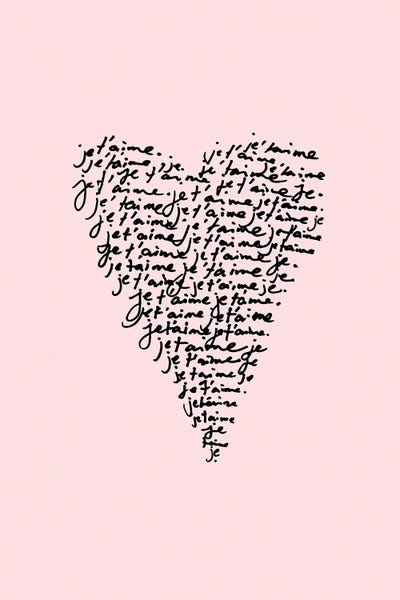 je t'aime. je t'aime
je t'aime. je t'aime je t'aime
je t'je t'aime je t'aime je t'aime
je t'aime. je t'aime je t'aime je.
je t'aime je t'aime je t'aime
je t'aime je t'aime je t'aime je
je t'aime je t'aime je t'aime
je t'aime je t'aime je t'aime
je t'aime je t'aime je.
je t'aime je t'aime je
je t'aime je t'aime je.
je t'aime je t'aime.
je t'aime je t'aime
je t'aime je t'aime.
je t'aime je
je t'aime je
je t'aime je
je t'aime.
je t'aime
je t'aime
je
t'aime
je